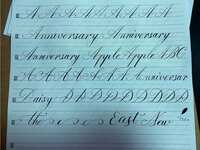 A A A A A A A A
Anniversary Anniversary
Anniversary Apple Apple ABC
A A A A A A A Anniversar
Daisy D D D D D D D D
The East New